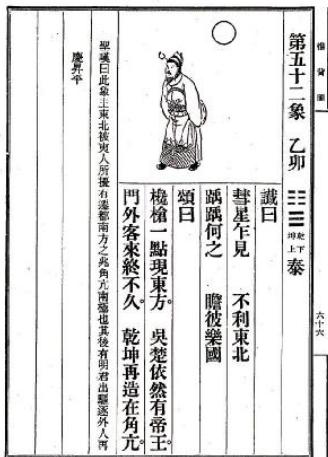 推背圖
六十六
第五十二象 乙卯 ䷊ 乾下坤上 泰
讖曰
彗星乍見 不利東北
踽踽何之 瞻彼樂國
頌曰
欃槍一點現東方。 吳楚依然有帝王。
門外客來終不久。 乾坤再造在角亢。
聖嘆曰此象主東北被夷人所擾有遷都南方之兆角亢南極也其後有明君出驅逐外人再
慶昇平